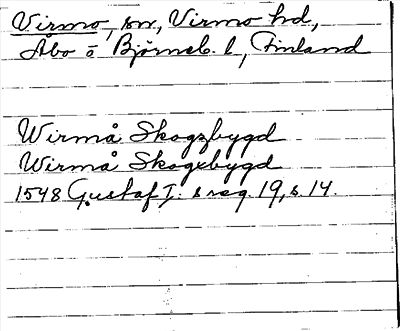 Virmo, sn, Virmo hd,
Åbo o Björneb. l, Finland
Wirmå Skogzbygd
Wirmå Skogxbygd
1548 Gustaf I:s reg. 19, s. 14.